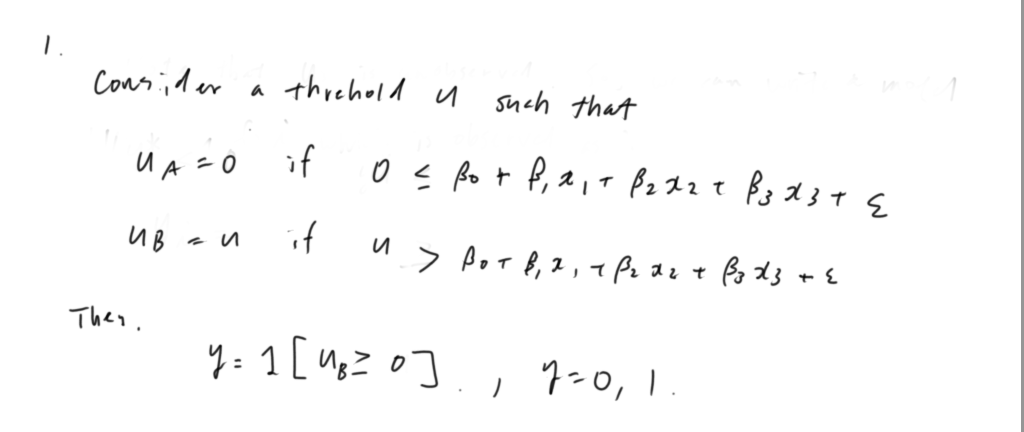 1.
Consider a threhold u such that
u_A = 0 if 0 ≤ β0 + β1 x1 + β2 x2 + β3 x3 + ε
u_B = u if u > β0 + β1 x1 + β2 x2 + β3 x3 + ε
Then.
y = 1[u_B ≥ 0]., y = 0, 1.